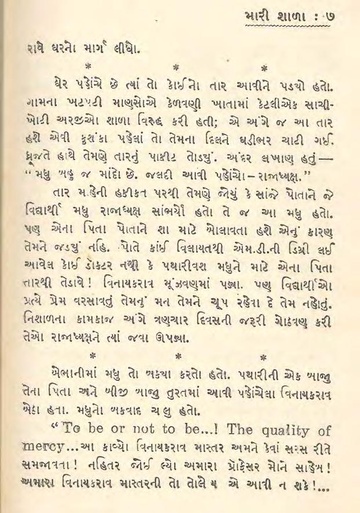 મારી શાળા : ૭
રાધે ઘરનો માર્ગ લીધો.
* * *
ઘેર પહોંચે છે ત્યાં તો કોઈનો તાર આવીને પડયો હતો.
ગામના ખટપટી માણસોએ કેળવણી ખાતામાં કેટલીએક સાચી-
ખોટી અરજીઓ શાળા વિરુદ્ધ કરી હતી; એ અંગે જ આ તાર
હશે એવી કુશંકા પહેલાં તો તેમના દિલને ઘડીભર ચાટી ગઈ.
ધ્રૂજતે હાથે તેમણે તારનું પાકીટ તોડયું. અંદર લખાણ હતું—
“મધુ બહુ જ માંદો છે. જલદી આવી પહોંચો–રાજાધ્યક્ષ.”
તાર મ.હેની હકીકત પરથી તેમણે જોયું કે સાંજે પોતાને જે
વિદ્યાર્થી મધુ રાજાધ્યક્ષ સાંભર્યો હતો તે જ આ મધુ હતો.
પણ એના પિતા પોતાને શા માટે બોલાવતા હશે એનું કારણ
તેમને જડયું નહિ. પોતે કાંઈ વિલાયતથી એમ.ડી.ની ડિગ્રી લઈ
આવેલ કોઈ ડૉક્ટર નથી કે પથારીવશ મધુને માટે એના પિતા
તારથી તેડાવે ! વિનાયકરાવ મૂંઝવણમાં પડ્યા. પણ વિદ્યાર્થીઓ
પ્રત્યે પ્રેમ વરસાવતું તેમનું મન તેમને ચૂપ રહેવા દે તેમ નહોતું.
નિશાળના કામકાજ અંગે ત્રણચાર દિવસની જરૂરી ગોઠવણુ કરી
તેઓ રાજાધ્યક્ષને ત્યાં જવા ઊપડ્યા.
* * *
બેભાનીમાં મધુ તો બકવા કરતો હતો. પથારીની એક બાજુ
તેના પિતા અને બીજી બાજુ તુરતમાં આવી પહોંચેલા વિનાયકરાવ
બેઠા હતા. મધુનો બકવાદ ચલુ હતો.
“To be or not to be...! The quality of
mercy...આ કાવ્યો વિનાયકરાવ માસ્તર અમને કેવાં સરસ રીતે
સમજાવતા ! નહિતર જોઈ લ્યો અમારા પ્રૉફેસર મોને સાહેબ !
અમારા વિનાયકરાવ માસ્તરની તો તોલેય એ આવી ન શકે !...